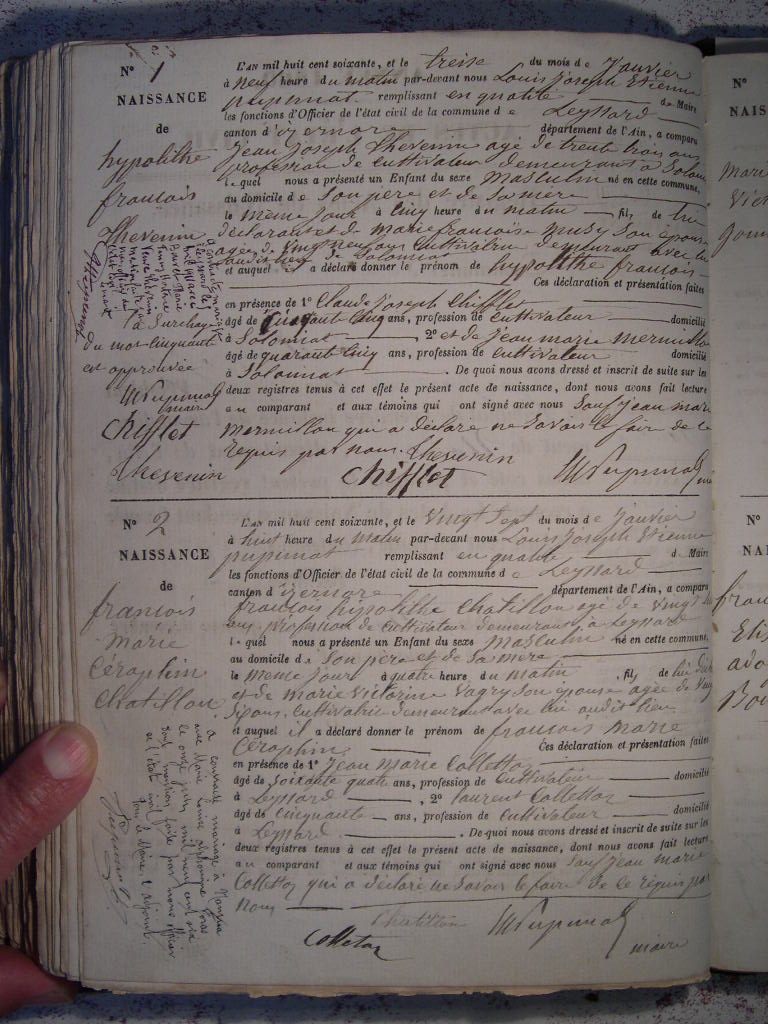 N° 1
NAISSANCE
de
hypolithe
francois
Thevenin
la Surcharge
du mot cinquante
est approuvée
maire
Chifflet
Thevenin
L'AN mil huit cent soixante, et le treise du mois de Janvier
à neuf heure du matin par-devant nous Louis Joseph Etienne
pupunat remplissant en qualité de Maire
les fonctions d'Officier de l'état civil de la commune de Leyssard
canton d'izernore département de l'Ain, a comparu
Jean Joseph Thevenin agé de trente trois ans
profession de cultivateur demeurant a Solomiat
lequel nous a présenté un Enfant du sexe masculin né en cette commune,
au domicile de son père et de sa mère
le même jour à cinq heure du matin fils de lui
déclarant et de marie francoise musy son épouse
agée de vingt neuf ans cultivatrice demeurant avec lui
audit lieu de Solomiat
et auquel a déclaré donner le prénom de hypolithe francois
Ces déclaration et présentation faites
en présence de 1° Claude Joseph Chifflet
âgé de Cinquante Cinq ans, profession de cultivateur domicilié
à Solomiat 2° et de Jean marie mermillon
âgé de quarante cinq ans, profession de cultivateur domicilié
à Solomiat . De quoi nous avons dressé et inscrit de suite sur les
deux registres tenus à cet effet le présent acte de naissance, dont nous avons fait lecture
au comparant et aux témoins qui ont signé avec nous Sauf Jean marie
mermillon qui a déclaré ne Savoir le faire de ce
requis par nous. Thevenin
Chifflet
N° 2
NAISSANCE
de
francois
Marie
Céraphin
Chatillon
a contracté mariage à
avec Marie Louise
le onze juin mil neuf cent six
L'AN mil huit cent soixante, et le vingt Sept du mois de Janvier
à huit heure du matin par-devant nous Louis Joseph Etienne
pupunat remplissant en qualité de Maire
les fonctions d'Officier de l'état civil de la commune de Leyssard
canton d'izernore département de l'Ain, a comparu
francois hypolithe Chatillon agé de vingt
ans profession de cultivateur demeurant à Leyssard
lequel nous a présenté un Enfant du sexe masculin né en cette commune,
au domicile de son père et de sa mère
le même jour à quatre heure du matin , fils de lui
et de marie victorine vagry son épouse agée de
ans, cultivatrice demeurant avec lui audit lieu
et auquel il a déclaré donner le prénom de francois Marie
Céraphin Ces déclaration et présentation faites
en présence de 1° Jean Marie Colletaz
âgé de soixante quatre ans, profession de cultivateur domicilié
à Leyssard , 2° laurent Colletaz
âgé de cinquante ans, profession de cultivateur domicilié
à Leyssard . De quoi nous avons dressé et inscrit de suite sur les
deux registres tenus à cet effet le présent acte de naissance, dont nous avons fait lecture
au comparant et aux témoins qui ont signé avec nous Sauf Jean marie
Colletaz qui a déclaré ne Savoir le faire de ce requis par
nous
Chatillon
Colletaz
maire
N°
N°